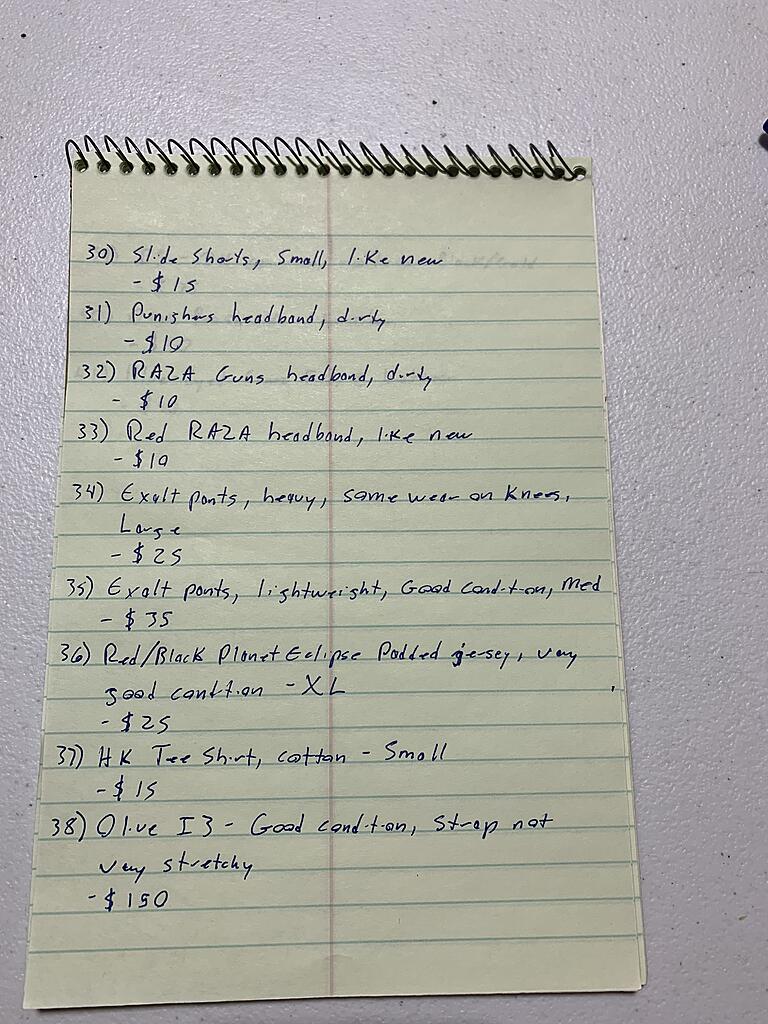 30) Slide Shorts, Small, like new
- $15
31) Punishers headband, dirty
- $10
32) RAZA Guns headband, dirty
- $10
33) Red RAZA headband, like new
- $10
34) Exalt pants, heavy, some wear on knees,
Large
- $25
35) Exalt pants, lightweight, Good condition, Med
- $35
36) Red/Black Planet Eclipse Padded jersey, very
good condition - XL
- $25
37) HK Tee Shirt, cotton - Small
- $15
38) Olive I3 - Good condition, Strap not
very stretchy
- $150